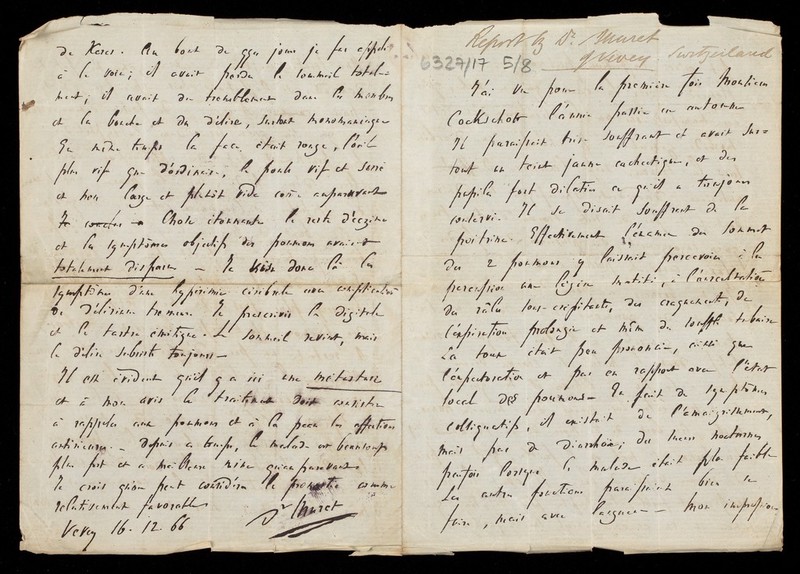 Report by Dr. Muret
of Vevey Switzerland
6327/17 5/8
J'ai vu pour la première fois Monsieur
Cockschott l'année passée en automne
Il paraissait très souffrant et avait sur=
tout un teint jaune cachectique, et des
pupilles fort dilatées ce qu'il a toujours
conservé. Il se disait souffrant de la
poitrine. Effectivement l'examen du sommet
des 2 poumons y laissait percevoir à la
percussion une légère matité, à l'auscultation
des râles sous-crépitants, des craquements, de
l'expiration prolongée et même du souffle tubaire
La toux était peu prononcée, ainsi que
l'expectoration et pas en rapport avec l'état
local des poumons. En fait de symptômes
colliquatifs, il existait de l'amaigrissement,
mais pas de diarrhée; des sueurs nocturnes
parfois lorsque le malade était plus faible
Les autres fonctions paraissaient bien se
faire, mais avec langueur – Mon impression
de Xeres. Au bout de qques jours je fus appelé
à le voir; il avait perdu le sommeil totale-
ment; il avait du tremblement dans les membres
et la bouche et du délire, surtout monomaniaque
En même temps la face était rouge, l'œil
plus vif que d'ordinaire, le pouls vif et serré
et non large et plutôt vide comme auparavant
Chose étonnante le reste d'eczéma
et les symptômes objectifs des poumons avaient
totalement disparu – Je donc là les
symptômes d'une hyperémie cérébrale avec complication
de délirium tremens. Je prescrivis la digitale
et le tartre émétique. Le sommeil revint, mais
le délire subsista toujours –
Il est évident qu'il y a ici une métastase
et à mon avis le traitement doit consister
à rappeler aux poumons et à la peau les affections
antérieures. – Depuis ce temps, le malade est beaucoup
plus fort et a meilleure mine qu'auparavant
Je crois qu'on peut considérer le pronostic comme
relativement favorable
Dr Muret
Vevey 16. 12. 66